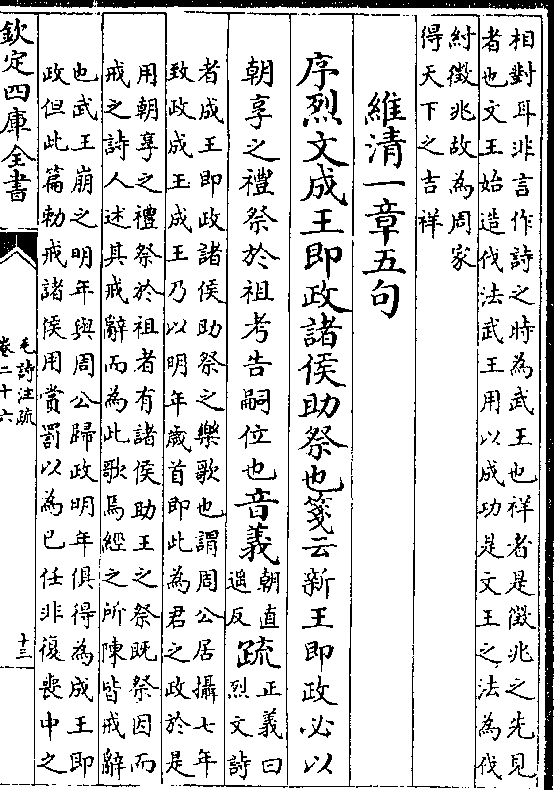 相對耳非言作詩之時為武王也祥者是徵兆之先見
者也文王始造伐法武王用以成功是文王之法為伐
紂徵兆故為周家
得天下之吉祥
維清一章五句
序烈文成王即政諸侯助祭也箋云新王即政必以
朝享之禮祭於祖考告嗣位也音義朝直遥反疏正義曰烈文詩
者成王即政諸侯助祭之樂歌也謂周公居攝七年
致政成王成王乃以明年歲首即此為君之政於是
用朝享之禮祭於祖者有諸侯助王之祭既祭因而
戒之詩人述其戒辭而為此歌焉經之所陳皆戒辭
也武王崩之明年與周公歸政明年俱得為成王即
政但此篇勅戒諸侯用賞罰以為已任非復喪中之
欽定四庫全書
毛詩注疏
卷二十六
十三